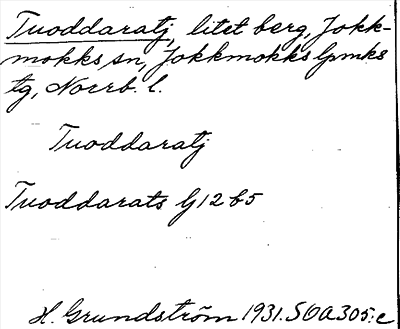 Tuoddaratj, litet berg, Jokk-
mokks sn, Jokkmokks lpmks
tg, Norrb. l.
Tuoddaratj
Tuoddarats G 12 b5
H. Grundström 1931. SOA 305:c